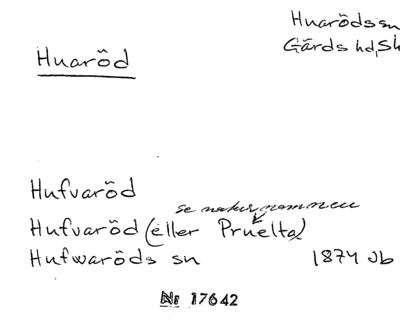 Huarödssn
Gärds hd, Sk
Huaröd
Hufvaröd
se naturnamnen
Hufvaröd (eller Pruelta)
Hufwaröds sn 1874 Jb
Nr 17642